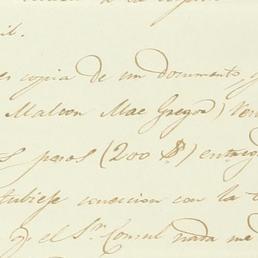 il.
es copia de un documento, q
Malcom Mac Gregor) Ven
s pesos (200 $) entreg
tubiese conexion con la
y el Sr. Consul nada me